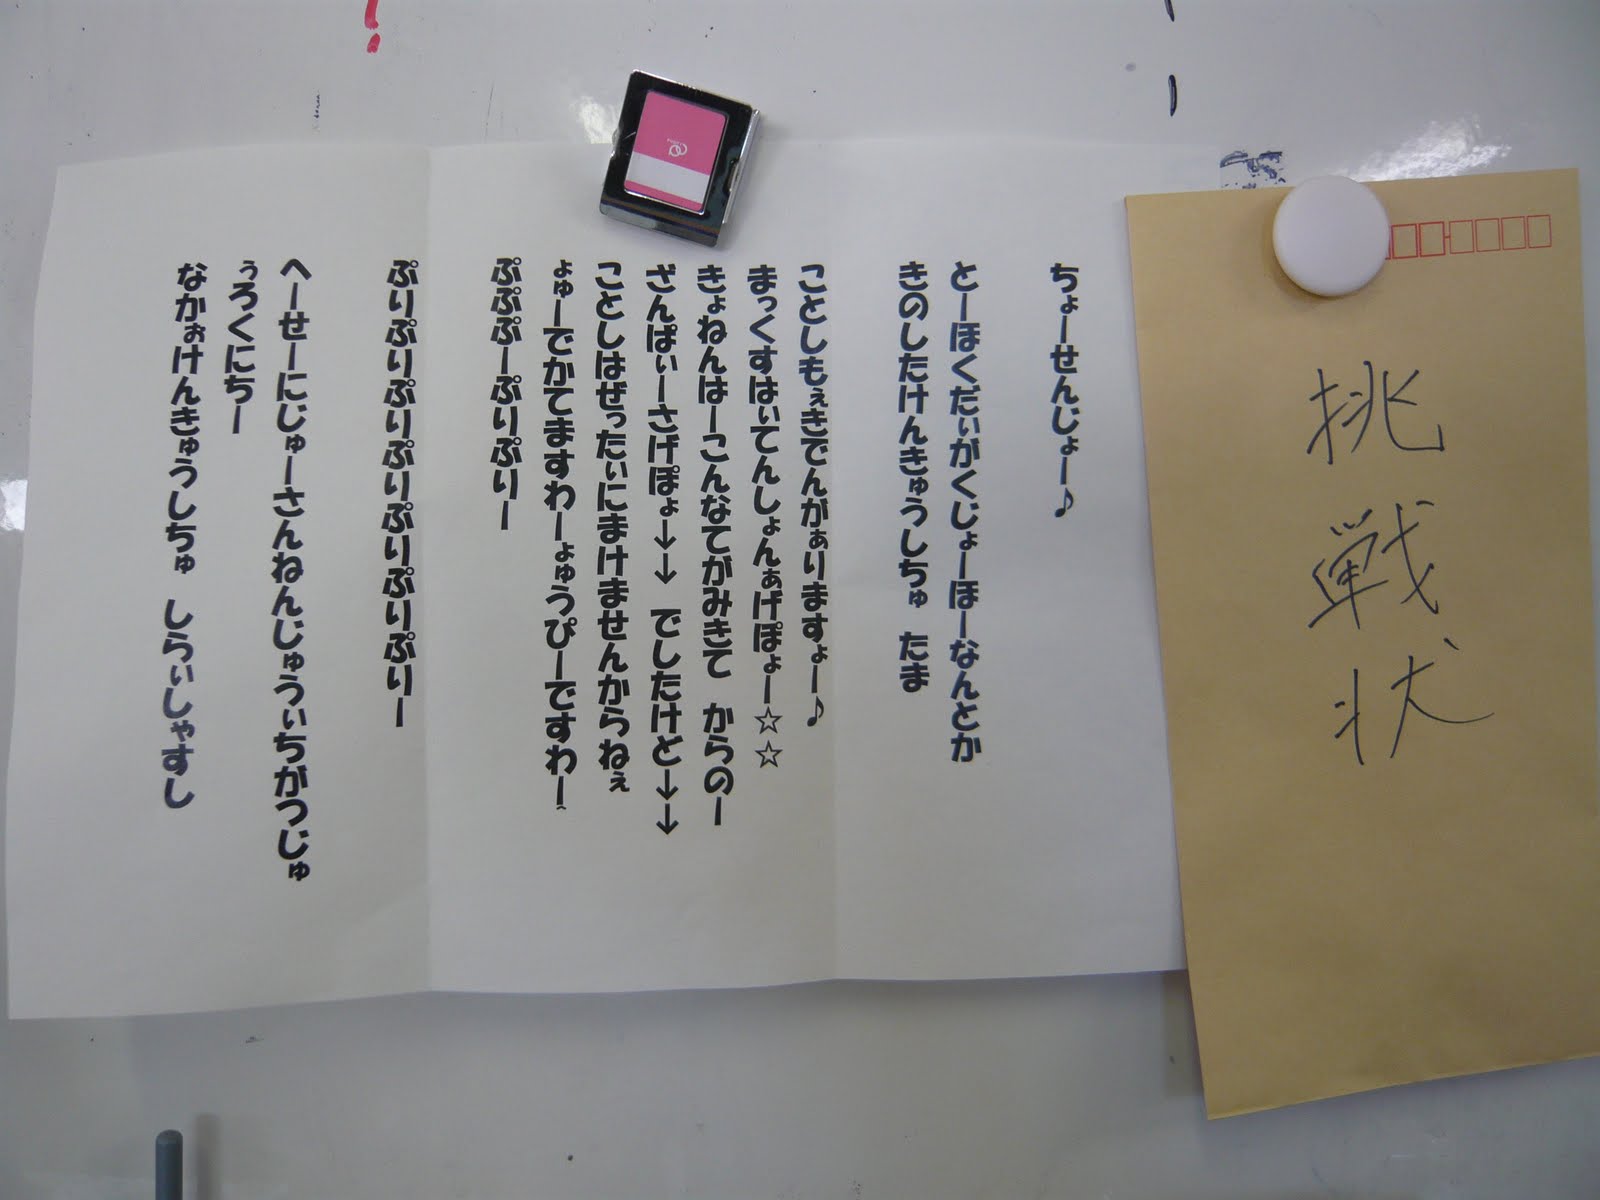 挑戦状
ちょーせんじょー♪
とーほくだぃがくじょーほーなんとか
きのしたけんきゅうしちゅ たま
ことしもぇきでんがぁりますょー♪
まっくすはぃてんしょんぁげぽょー☆☆
きょねんはーこんなてがみきて からのー
ざんぱぃーさげぽょ→→ でしたけど→→
ことしはぜったぃにまけませんからねぇ
ょゅーでかてますわーょゅうぴーですわー
ぷぷぷーぷりぷりー
ぷりぷりぷりぷりぷりぷりぷりー
へーせーにじゅーさんねんじゅうぃちがつじゅ
ぅろくにちー
なかぉけんきゅうしちゅ しらぃしゃすし